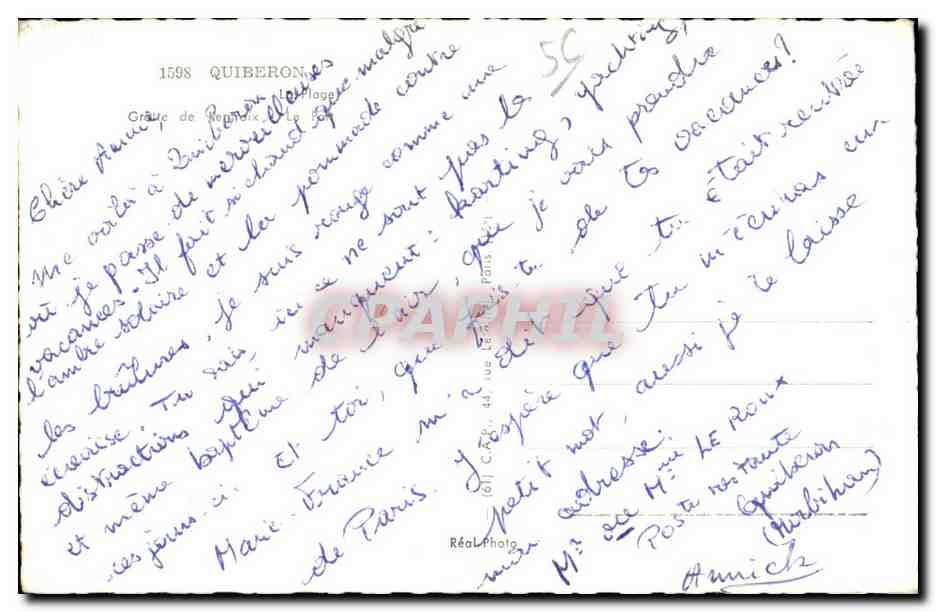 1598 QUIBERON
La Plage
Grotte de Kerniscob - Le Port
5G
Chère Annie,
Me voilà à Quiberon
où je passe de merveilleuses
vacances. Il fait si chaud que malgré
l'ambre solaire et la pommade contre
les brûlures, je suis rouge comme une
écrevisse. Tu sais ici ce ne sont pas les
distractions qui manquent : karting, yachting,
et même baptême de l'air, que je vais prendre
ces jours-ci. Et toi, que fais-tu de tes vacances ?
Marie-France m'a dit que tu étais rentrée
de Paris. J'espère que tu m'écriras un
petit mot, aussi je te laisse
mon adresse :
Mr ou Mme LE ROUX
Poste restante
Quiberon
(Morbihan)
Annick
(61) C.A.P. 44, rue Paris
Réal-Photo
CPAPHIL